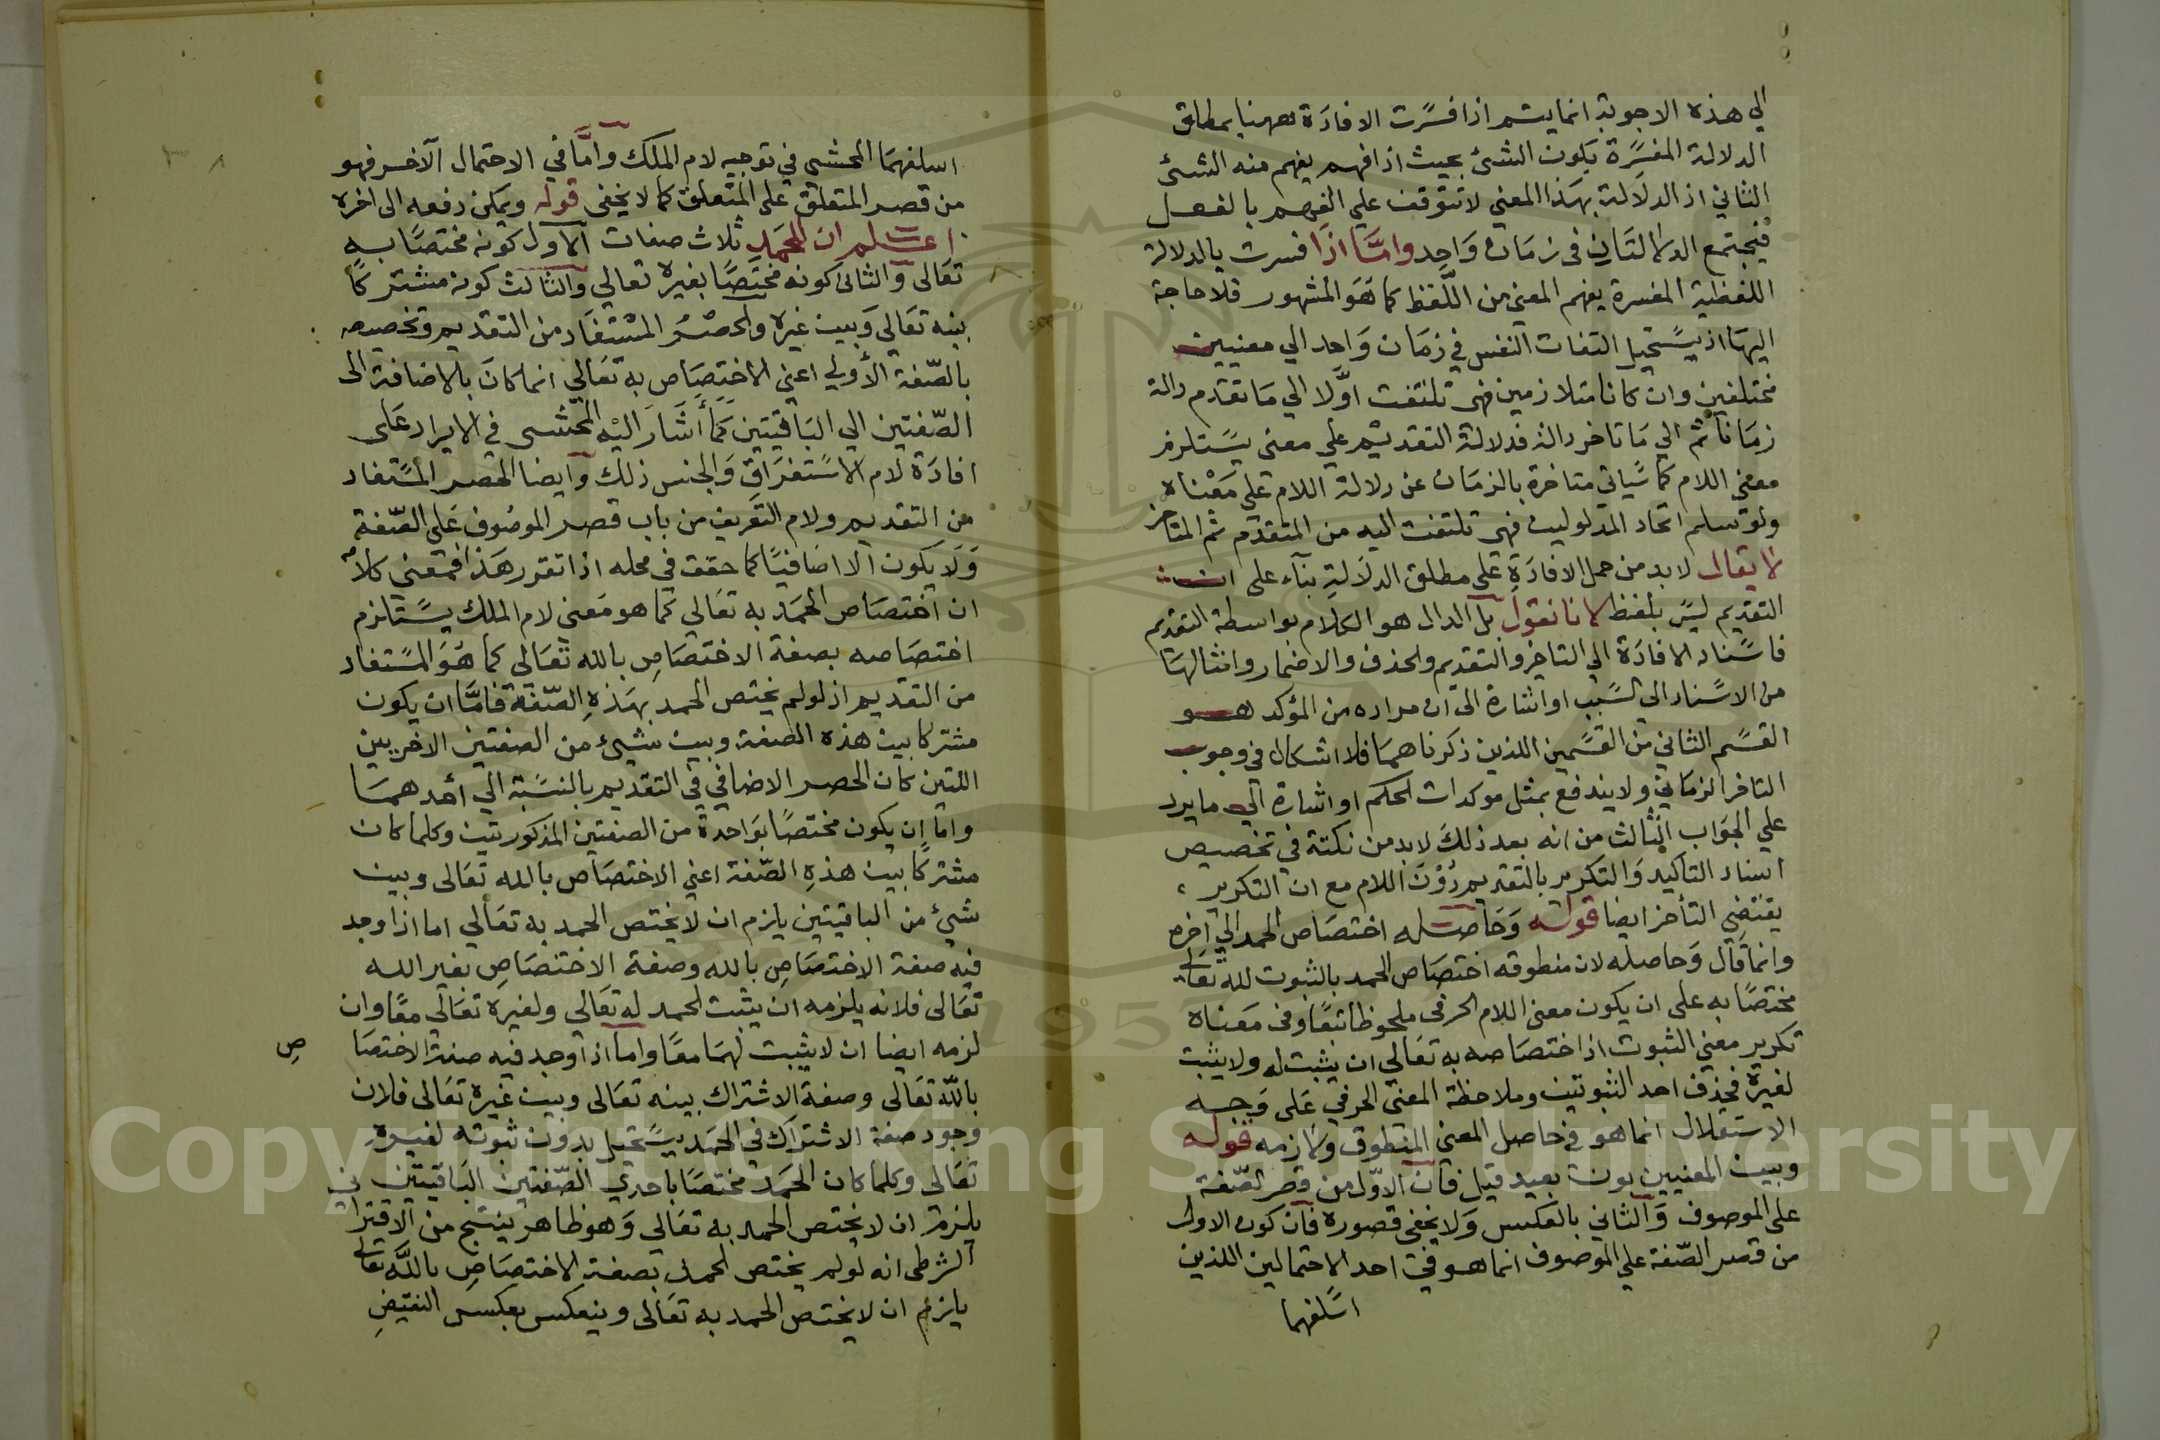 الي هذه الاجوبة انما يتم اذا فسّرت الافادة ههنا بمطلق
الدلالة المفسّرة بكون الشئ بحيث اذا فهم يفهم منه الشئ
الثاني اذ الدلالة بهذا المعني لا تتوقف علي الفهم بالفعل
فيجتمع الدلالتان في زمان واحد واما اذا فسرت بالدلالة
اللفظية المفسرة بفهم المعني من اللفظ كما هو المشهور فلا حاجة
اليها اذ يستحيل التفات النفس في زمان واحد الي معنيين
مختلفين وان كانا متلازمين فهي تلتفت اوّلا الي ما تقدم دالة
زمانا ثم الي ما تاخر دالة فدلالة التقديم علي معني يستلزم
معني اللام كما سياتي متاخرة بالزمان عن دلالة اللام علي معناه
ولو سلم اتحاد المدلولين فهي تلتفت اليه من المتقدم ثم المتاخر
لا يقال لا بد من حمل الافادة علي مطلق الدلالة بناء على ان
التقديم ليس بلفظ لانا نقول بل الدال هو الكلام بواسطة التقديم
فاسناد الافادة الي التاخر والتقديم والحذف والاضمار وامثالها
من الاسناد الي السبب او اشارة الي ان مراده من المؤكد هو
القسم الثاني من القسمين اللذين ذكرناهما فلا اشكال في وجوب
التاخر الزماني ولا يندفع بمثل موكدات الحكم او اشارة الي ما يرد
علي الجواب الثالث من انه بعد ذلك لا بد من نكتة في تخصيص
اسناد التاكيد والتكرير بالتقديم دون اللام مع ان التكرير
يقتضي التأخر ايضا قوله وحاصله اختصاص الحمد الي اخره
وانما قال وحاصله لان منطوقه اختصاص الحمد بالثبوت لله تعالي
مختصا به على ان يكون معنى اللام الحرفي ملحوظا تبعا وفي معناه
تكرير معني الثبوت اذ اختصاصه به تعالي ان يثبت له ولا يثبت
لغيره فحذف احد الثبوتين وملاحظة المعني الحرفي على وجه
الاستقلال انما هو في حاصل المعني المنطوق ولازمه قوله
وبين المعنيين بون بعيد قيل فان الاوّل من قصر الصفة
على الموصوف والثاني بالعكس ولا يخفى قصوره فان كون الاول
من قصر الصّفة علي الموصوف انما هو في احد الاحتمالين اللذين
اسلفهما
اسلفهما المحشى في توجيه لام الملك وامّا في الاحتمال الآخر فهو
من قصر المتعلق على المتعلق كما لا يخفى قوله ويمكن دفعه الى اخره
اعلم ان للحمد ثلاث صفات الاول كونه مختصّا به
تعالى والثاني كونه مختصّا بغيره تعالي والثالث كونه مشتركا
بينه تعالي وبين غيره والحصر المستفاد من التقديم وتخصيصه
بالصّفة الأولي اعني الاختصاص به تعالي انما كان بالاضافة الى
الصّفتين الي الباقيتين كما أشار اليه المحشى في الايراد على
افادة لام الاستغراق والجنس ذلك وايضا الحصر المستفاد
من التقديم ولام التعريف من باب قصر الموصوف على الصّفة
ولا يكون الا اضافيّا كما حقق في محله اذا تقرر هذا فمعني كلامه
ان اختصاص الحمد به تعالي كما هو معني لام الملك يستلزم
اختصاصه بصفة الاختصاص بالله تعالي كما هو المستفاد
من التقديم اذ لو لم يختص الحمد بهذه الصّفة فامّا ان يكون
مشتركا بين هذه الصفة وبين شيئ من الصفتين الاخريين
اللتين كان الحصر الاضافي في التقديم بالنسبة الي أحدهما
واما ان يكون مختصّا بواحدة من الصفتين المذكورتين وكلما كان
مشتركا بين هذه الصّفة اعني الاختصاص بالله تعالى وبين
شيئ من الباقيتين يلزم ان لا يختص الحمد به تعالي اما اذا وجد
فيه صفة الاختصاص بالله وصفة الاختصاص بغير الله
تعالى فلانه يلزمه ان يثبت الحمد له تعالي ولغيره تعالي معًا وان
لزمه ايضا ان لا يثبت لهما معًا واما اذا وجد فيه صفة الاختصا
ص
بالله تعالى وصفة الاشتراك بينه تعالى وبين غيره تعالى فلان
وجود صفة الاشتراك في الحمد يستحيل بدون ثبوته لغيره
تعالى وكلما كان الحمد مختصّا باحدي الصّفتين الباقيتين
يلزم ان لا يختص الحمد به تعالي وهو ظاهر ينتج من الاقتراني
الشرطى انه لو لم يختص الحمد بصفة الاختصاص بالله تعالى
يلزم ان لا يختص الحمد به تعالى وينعكس بعكس النقيض
Copyright © King Saud University
1957